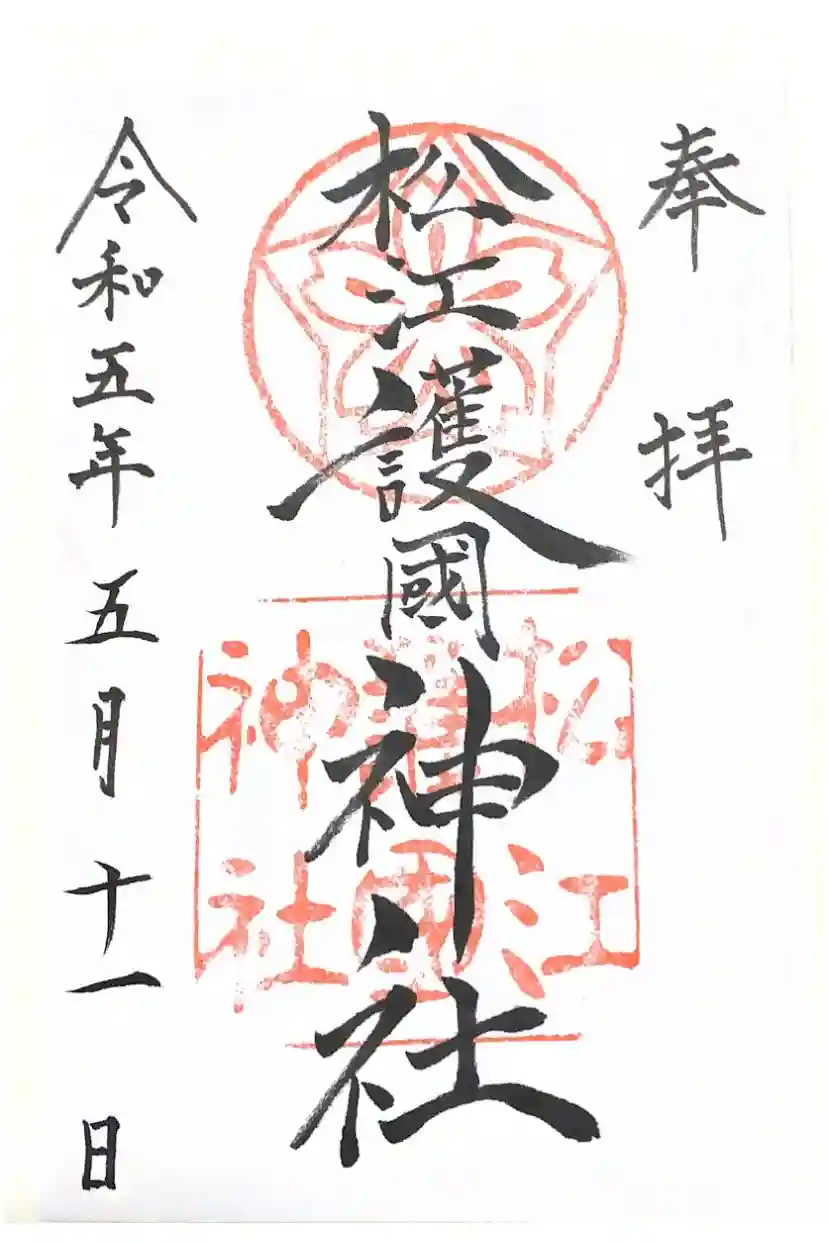 奉拝
松江護國神社
松江護國神社
令和五年五月十一日